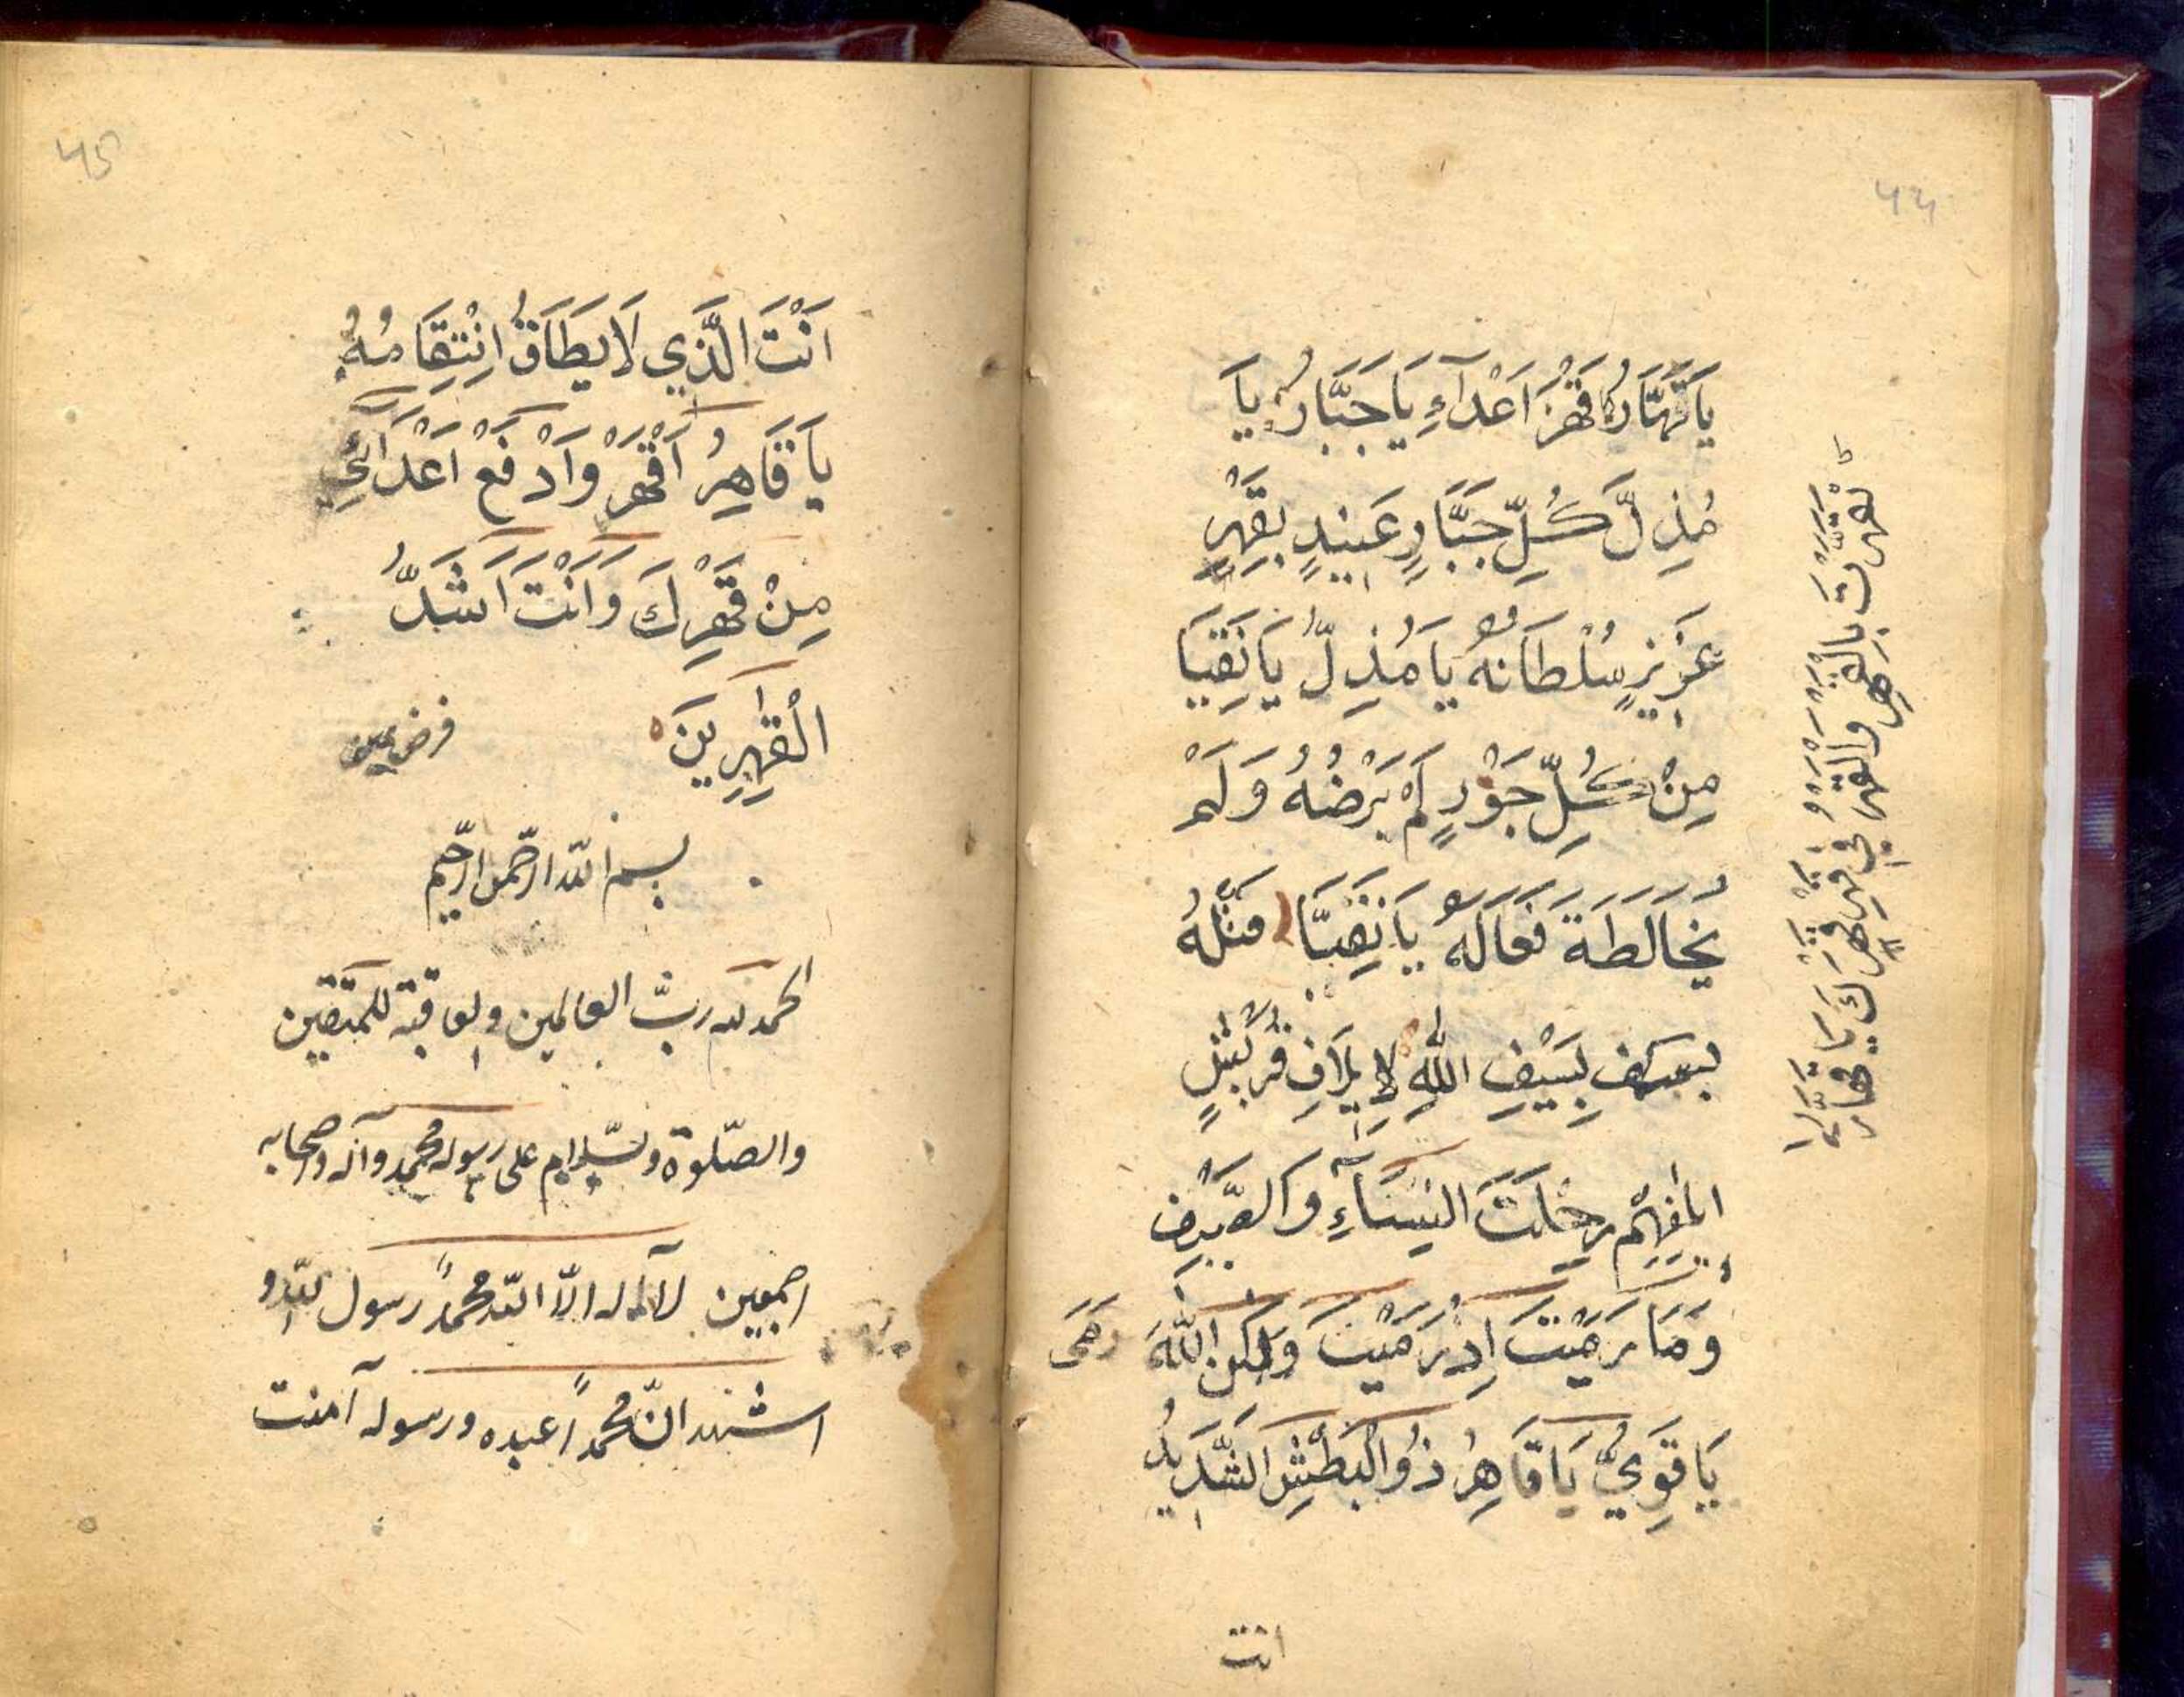 ۴۴
يَا قَهَّارُ اقْهَرْ اَعْدَآءِ يَا جَبَّارُ يَا
مُذِلَّ كُلِّ جَبَّارٍ عَنِيدٍ بِقَهْرٍ
عَزِيزٍ سُلْطَانُهُ يَا مُذِلُّ يَا نَقِيَا
مِنْ كُلِّ جَوْرٍ لَمْ يَرْضُهُ وَلَمْ
يُخَالَطَةَ فَعَالَهُ يَا نَقِيًّا
بِسَيْفِ اللهِ لِاِيلَافِ قُرَيْشٍ
اِيلَافِهِمْ رِحْلَتَ الشِّتَآءِ وَالصَّيْفِ
وَمَا رَمَيْتَ اِذْ رَمَيْتَ وَلٰكِنَّ اللّٰهَ رَمَى
يَا قَوِيُّ يَا قَاهِرُ ذُو الْبَطْشِ الشَّدِيدُ
انت
تَقَهَّرْتَ بِالْقَهْرِ وَالْقَهْرُ فِي قَهْرِ قَهْرِكَ يَا قَهَّارُ
۴۵
اَنْتَ الَّذِي لَا يُطَاقُ اِنْتِقَامُهُ
يَا قَاهِرُ اَقْهَرْ وَاَدْفَعْ اَعْدَآئِي
مِنْ قَهْرِكَ وَاَنْتَ اَشَدُّ
الْقٰهِرِينَ
فرض عين
بسم الله الرّحمن الرّحيم
الحمد لله ربّ العالمين والعاقبة للمتّقين
والصّلوة والسّلام على رسوله محمد وآله واصحابه
اجمعين لا اله الّا الله محمدًا رسول الله و
اشهد انّ محمدًا عبده ورسوله آمنت